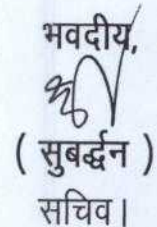 भवदीय,
( सुबर्द्धन )
सचिव।